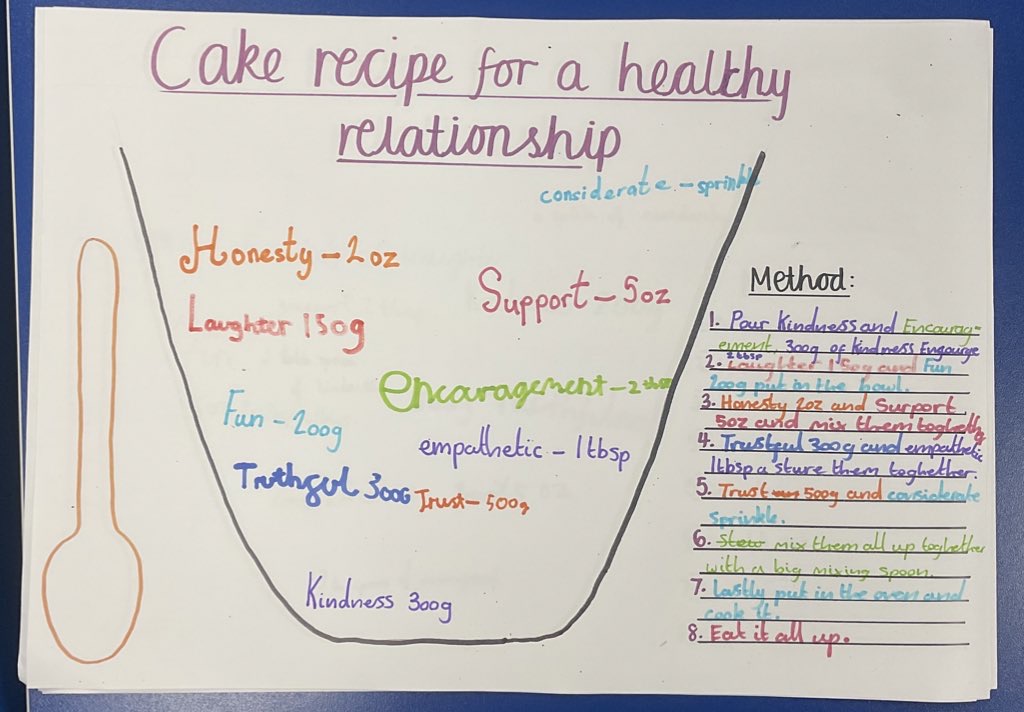 Cake recipe for a healthy
relationship
considerate - sprinkle
Honesty - 2oz
Support - 5oz
Laughter 150g
encouragement - 2 tbsp
Fun - 200g
empathetic - 1tbsp
Truthful 300G
Trust - 500g
Kindness 300g
Method:
1. Pour Kindness and Encourag-
ement, 300g of kindness
2. 2tbsp Laughter 150g and Fun
200g put in the bowl.
3. Honesty 2oz and Support
5oz and mix them
4. 300g and empathetic
1tbsp a sture them toghether.
5. Trust 500g and considerate
sprinkle.
6. mix them all up toghether
with a big mixing spoon.
7. Lastly put in the oven and
cook it.
8. Eat it all up.